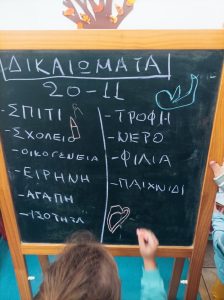 ΔΙΚΑΙΩΜΑΤΑ
20-11
-ΣΠΙΤΙ
-ΣΧΟΛΕΙΟ
-ΟΙΚΟΓΕΝΕΙΑ
-ΕΙΡΗΝΗ
-ΑΓΑΠΗ
-ΙΣΟΤΗΤΑ
-ΤΡΟΦΗ
-ΝΕΡΟ
-ΦΙΛΙΑ
-ΠΑΙΧΝΙΔΙ